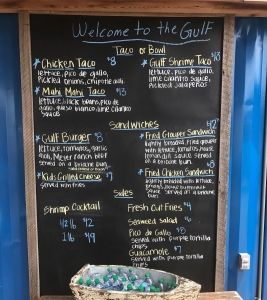 Welcome to the Gulf
Taco or Bowl
Chicken Taco $8
lettuce, pico de gallo,
pickled onions, chipotle aioli
Mahi Mahi Taco $13
lettuce, black beans, pico de
gallo, queso blanco, lime cilantro
sauce
Gulf Shrimp Taco $13
lettuce, pico de gallo,
lime cilantro sauce,
pickled jalapeños
Sandwiches
Gulf Burger $8
lettuce, tomatoes, garlic
aioli, Meyer ranch beef
served on a brioche bun
Kids Grilled Cheese $7
served with fries
$12
Fried Grouper Sandwich
lightly breaded, fried grouper
with lettuce, tomatoes, house
lemon dill sauce served
on a brioche bun
Fried Chicken Sandwich
Sides
Shrimp Cocktail
1/2 lb $12
1 lb $19
Fresh Cut Fries $4
Seaweed Salad
Pico de Gallo
served with purple tortilla
chips
Guacamole
served with purple tortilla
chips